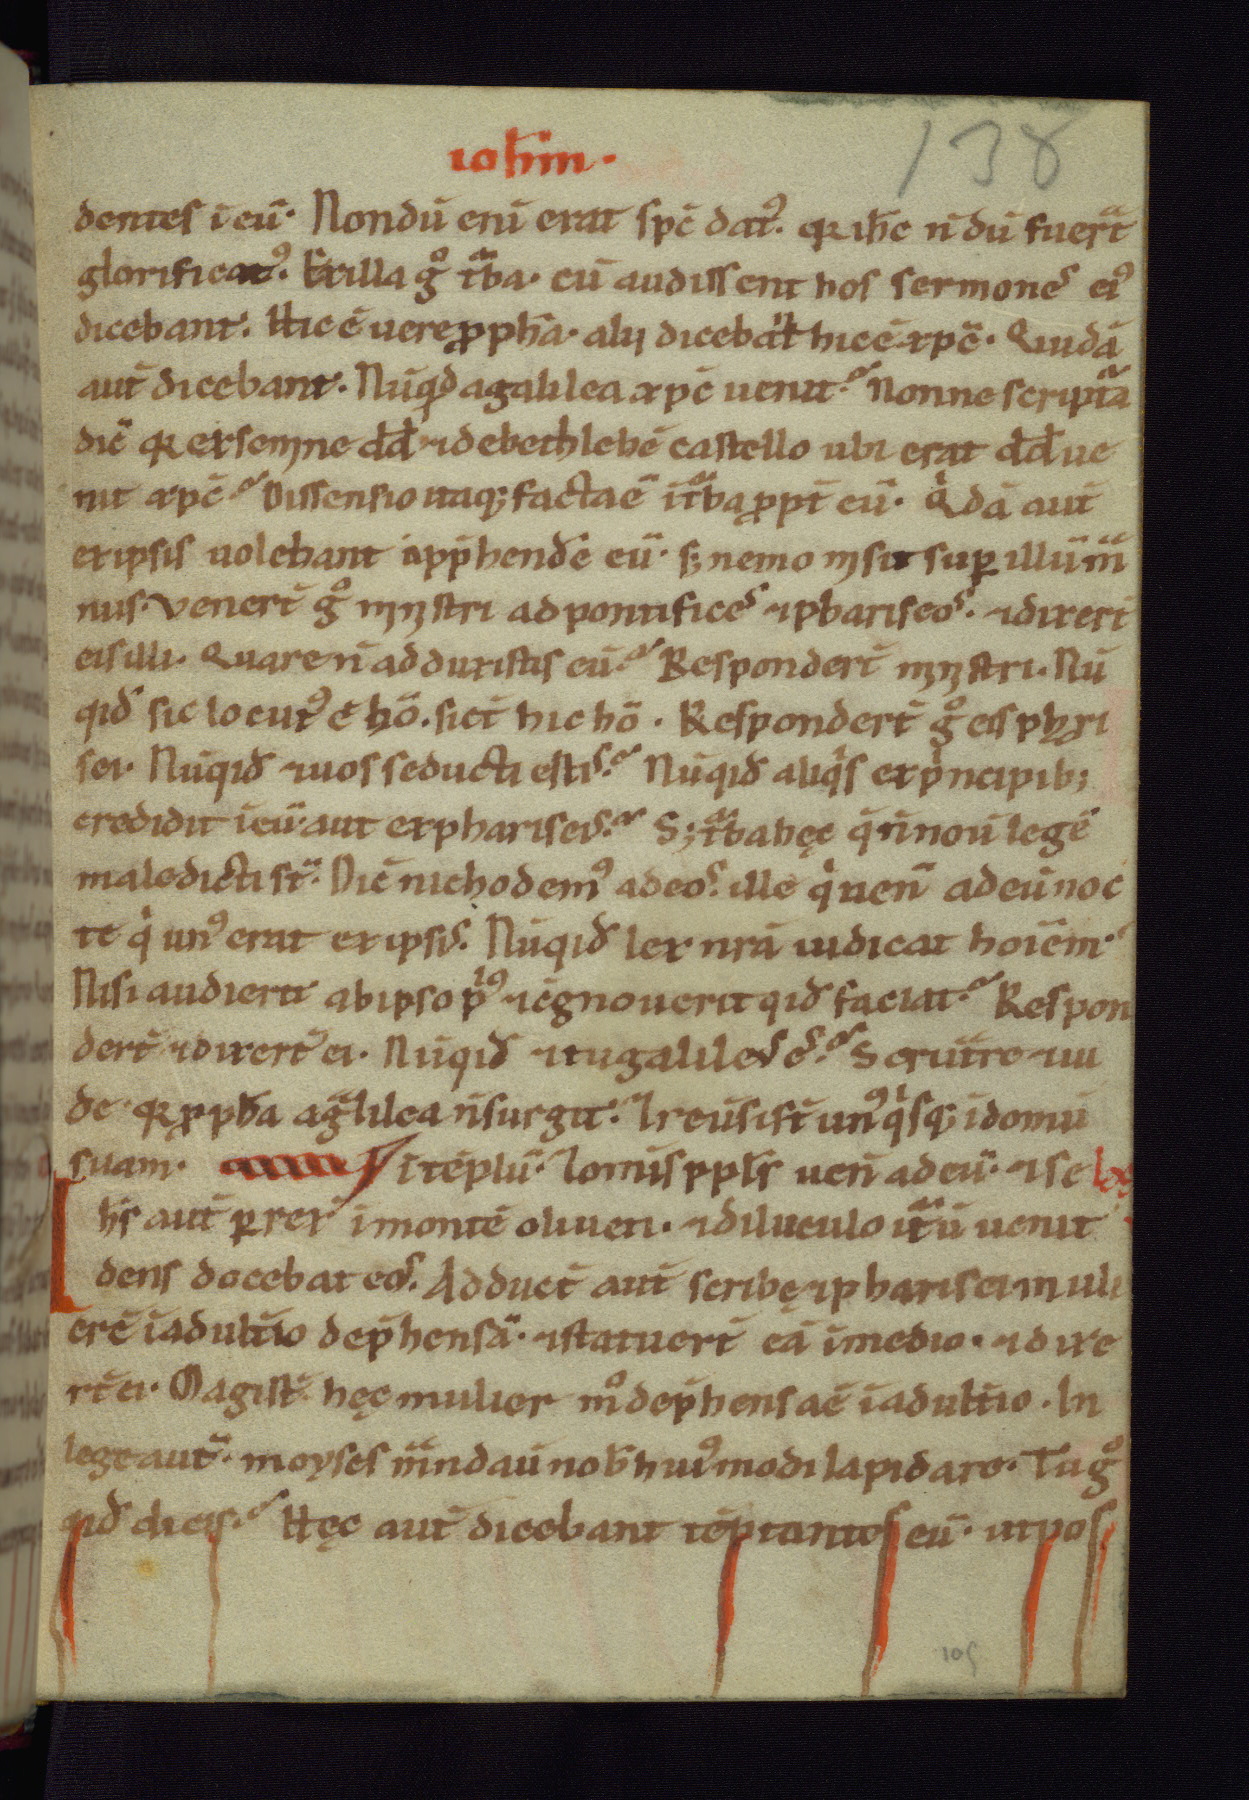 ioħm·
138
dentes ī eū· Nondū enī erat spc̄ datꝰ· qꝛ ih̄c n̄ dū fuer̄t
glorificatꝰ· Ex illa gͦ tᵃba· cū audissent hos sermones eiꝰ
dicebant· Hic ē uere ꝓpha· alij dicebāt hic ē xp̄c· Quidā
aut̄ dicebant· Nūqd a galilea xp̄c uenit· Nonne scriptᵃ
dic̄ qꝛ ex semine dd̄ ⁊ de bethlehē castello ubi erat dd̄ ue
nit xp̄c Dissensio itaqꝫ facta ē ī tᵃba ꝓpt̄ eū· Qⁱdā aut̄
ex ipsis uolebant app̄hendē eū· sꝫ nemo misit suꝑ illū mᵃ
nus· Venert̄ gͦ mīstri ad pontifices ⁊ phariseos· ⁊ dixert̄
eis illi· Quare n̄ adduxistis eū· Respondert̄ mīstri· Nū
qid̄ sic locutꝰ ē hō· sict̄ hic hō· Respondert̄ gͦ eis phari
sei· Nūqid̄ ⁊ uos seducti estis· Nūqid̄ aliqⁱs ex pⁱncipibꝫ
credidit ī eū· aut ex phariseis· Sꝫ tᵃba hęc q̄ n̄ nou̅ legē
maledicti st̄· Dic̄ nichodemꝰ ad eos· ille qⁱ uen̄ ad eū noc
te qⁱ unꝰ erat ex ipsis· Nūqid̄ lex nr̄a iudicat hoīem·
Nisi audierit ab ipso pⁱꝰ ⁊ cognouerit qid̄ faciat· Respon
dert̄ ⁊ dixert̄ ei· Nūqid̄ ⁊ tu galileꝰ es· Scrutᵃre ⁊ ui
de· qꝛ ꝓph̄a a gᵃlilea n̄ surgit· Ireūsist̄ unꝰqⁱsqꝫ ī domū
suam· ī tēplū· ⁊ omīs ppl̄s uen̄ ad eū· ⁊ se
Ih̄s aut̄ ꝑrex̄ ī montē oliueti· ⁊ diluculo itᵃū uenit
dens docebat eos· Adduct̄ aut̄ scribę ⁊ pharisei muli
erē ī adult̄io dep̄hensā· ⁊ statuert̄ eā ī medio· ⁊ dixe
rt̄ ei· Magist̄· hęc mulier mͦ dep̄hensa ē ī adult̄io· In
lege aut̄· moyses mᵃndau̅ nob̄ huiꝰmodi lapidare· Tu gͦ
qid̄ dicis· Hęc aut̄ dicebant tēptantes eū· ut pos
105